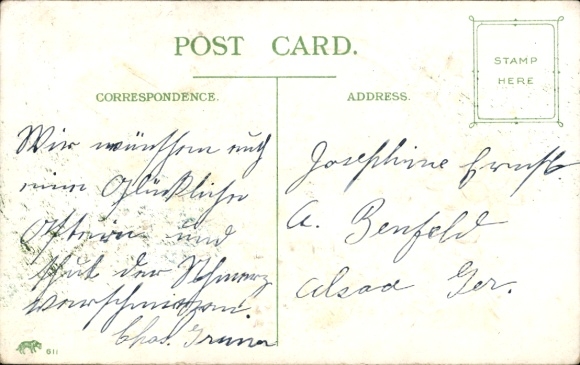 POST CARD.
STAMP
HERE
CORRESPONDENCE.
ADDRESS.
Wir wünschen euch
eine Glückliche
Ostern und
der Schmerz
Chas.
Josephine Ernst.
A. Benfeld
Alsad Ger.
611